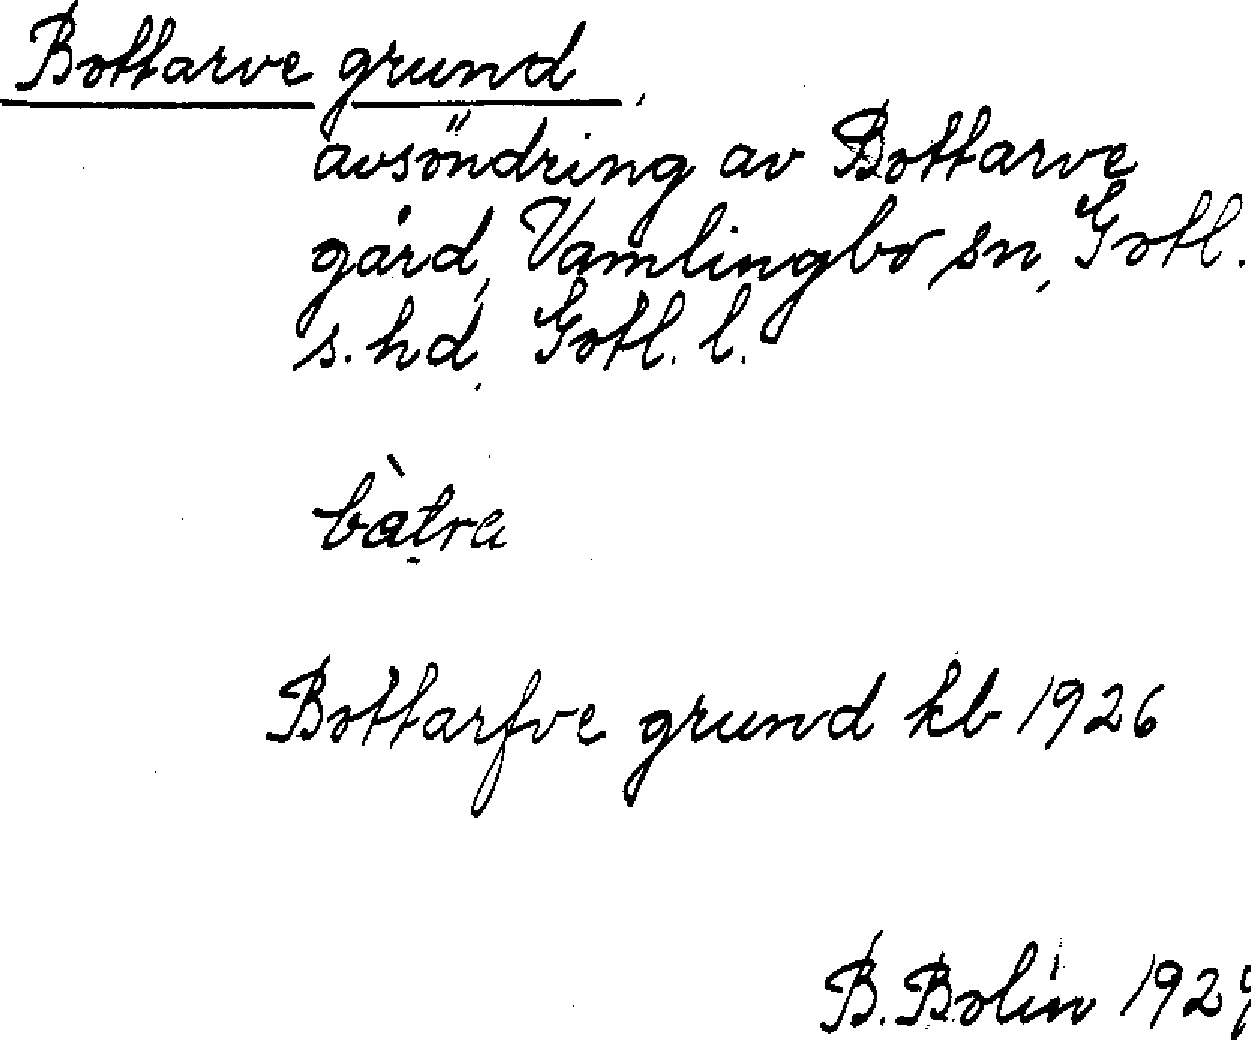 Bottarve grund,
avsöndring av Bottarve
gård, Vamlingbo sn, Gotl.
s. hd, Gotl. l.
bàtra
Bottarfve grund kb 1926
B. Bolin